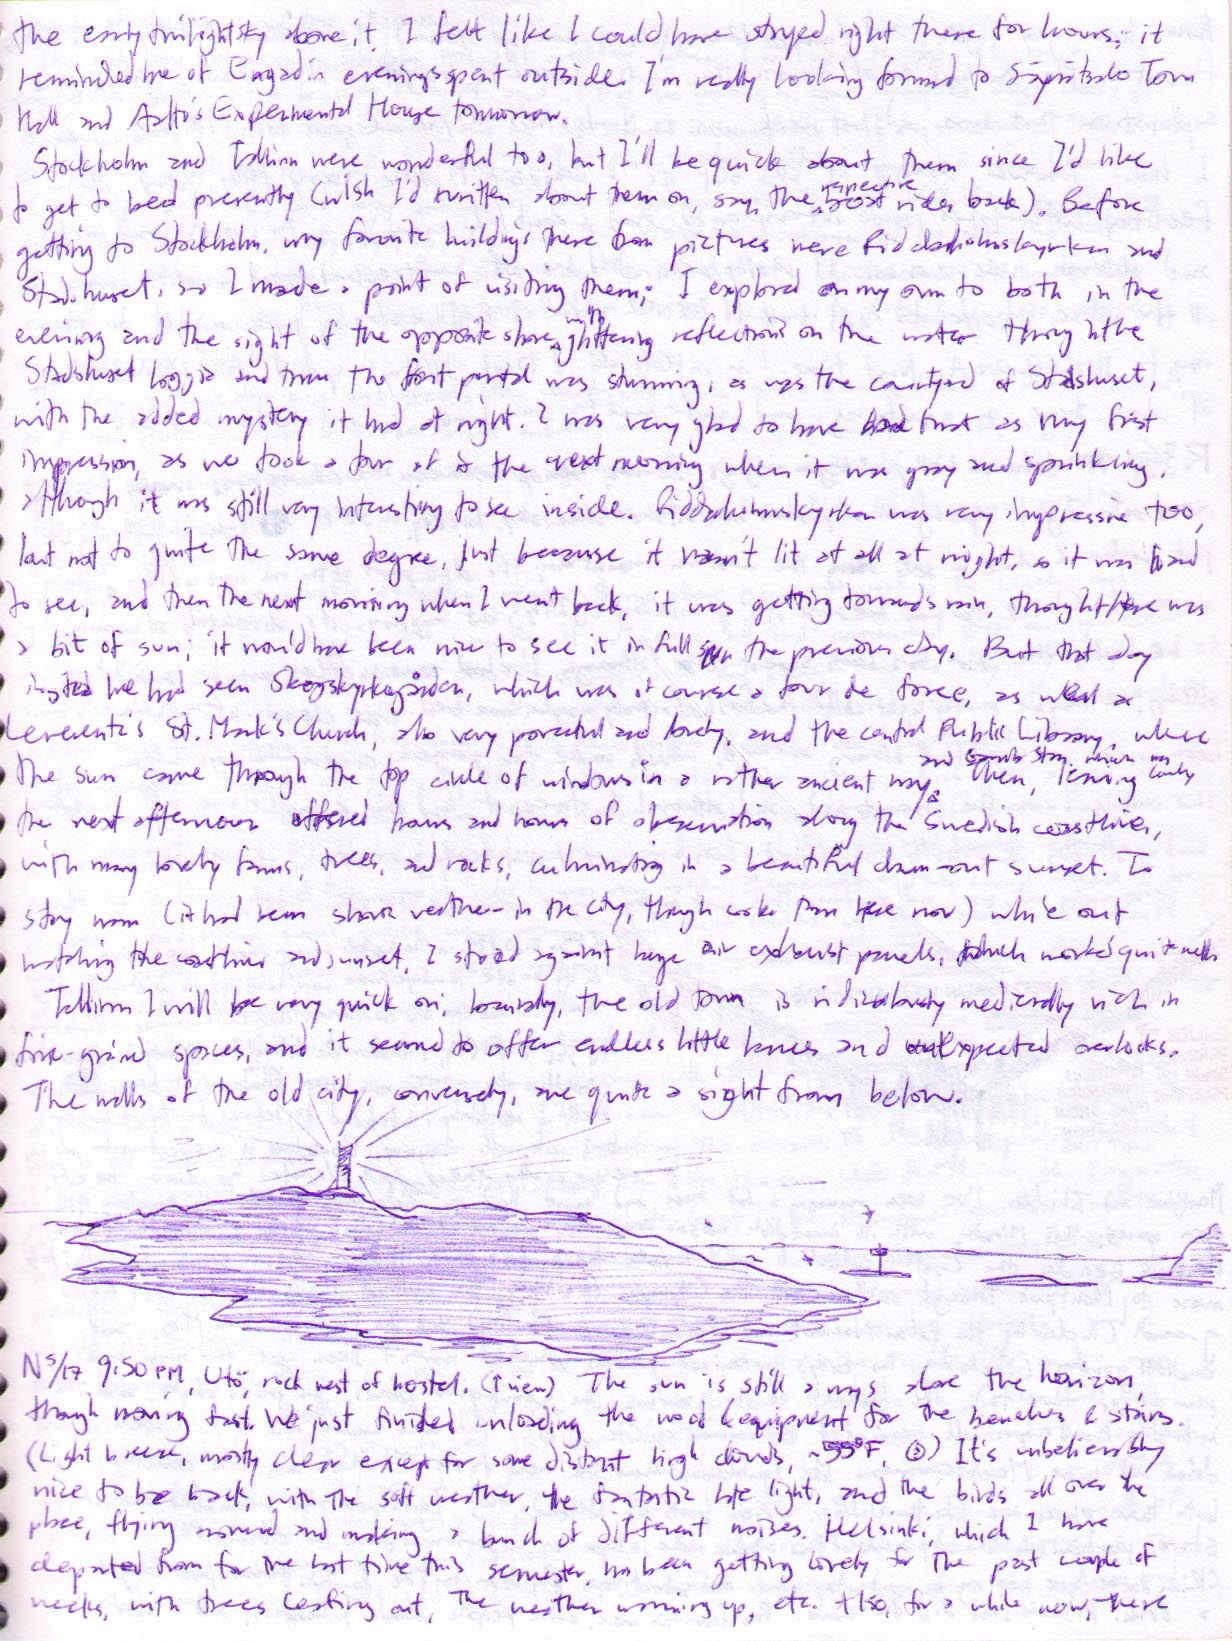 the early twilight sky above it. I felt like I could have stayed right there for hours; it
reminded me of Engadin evenings spent outside. I'm really looking forward to Säynätsalo Town
Hall and Aalto's Experimental House tomorrow.
Stockholm and Tallinn were wonderful too, but I'll be quick about them since I'd like
to get to bed presently (wish I'd written about them on, say, the respective boat rides back). Before
getting to Stockholm, my favorite buildings there from pictures were Riddarholmskyrkan and
Stadshuset, so I made a point of visiting them; I explored on my own to both in the
evening and the sight of the opposite shore with glittering reflections on the water through the
Stadshuset loggia and from the front portal was stunning, as was the courtyard of Stadshuset,
with the added mystery it had at night. I was very glad to have had that as my first
impression, as we took a tour of it the next morning when it was gray and sprinkling,
although it was still very interesting to see inside. Riddarholmskyrkan was very impressive too,
but not to quite the same degree, just because it wasn't lit at all at night, so it was hard
to see, and then the next morning when I went back, it was getting towards rain, though there was
a bit of sun; it would have been nice to see it in full sun the previous day. But that day
instead we had seen Skogskyrkogården, which was of course a tour de force, as well as
Lewerentz's St. Mark's Church, also very powerful and lovely, and the central Public Library, where
the sun came through the top circle of windows in a rather ancient way, and Gamla Stan, which was lovely. Then, leaving
the next afternoon offered hours and hours of observation along the Swedish coastline,
with many lovely farms, trees, and rocks, culminating in a beautiful drawn-out sunset. To
stay warm (it had been shorts weather in the city, though cooler than here now) while out
watching the coastline and sunset, I stood against huge air exhaust panels, which worked quite well.
Tallinn I will be very quick on; basically, the old town is ridiculously medievally rich in
fine-grained spaces, and it seemed to offer endless little lanes and unexpected overlooks.
The walls of the old city, conversely, are quite a sight from below.
N 5/17 9:50 PM, Utö, rock west of hostel. (↑ view) The sun is still a ways above the horizon,
though moving fast. We just finished unloading the wood & equipment for the benches & stairs.
(Light breeze, mostly clear except for some distant high clouds, ~55°F, ☺) It's unbelievably
nice to be back, with the soft weather, the fantastic late light, and the birds all over the
place, flying around and making a bunch of different noises. Helsinki, which I have
departed from for the last time this semester, has been getting lovely for the past couple of
weeks, with trees leafing out, the weather warming up, etc. Also, for a while now, there